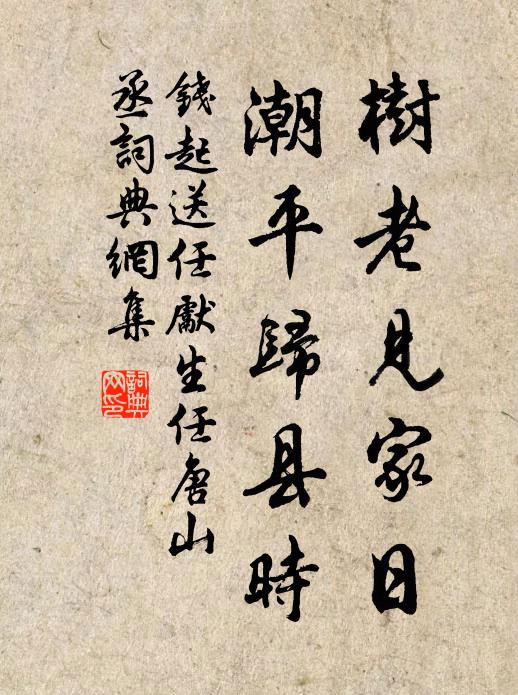 樹老見家日
潮平歸县時
錢起送任獻生任唐山
丞詞典網集
詞典
网印